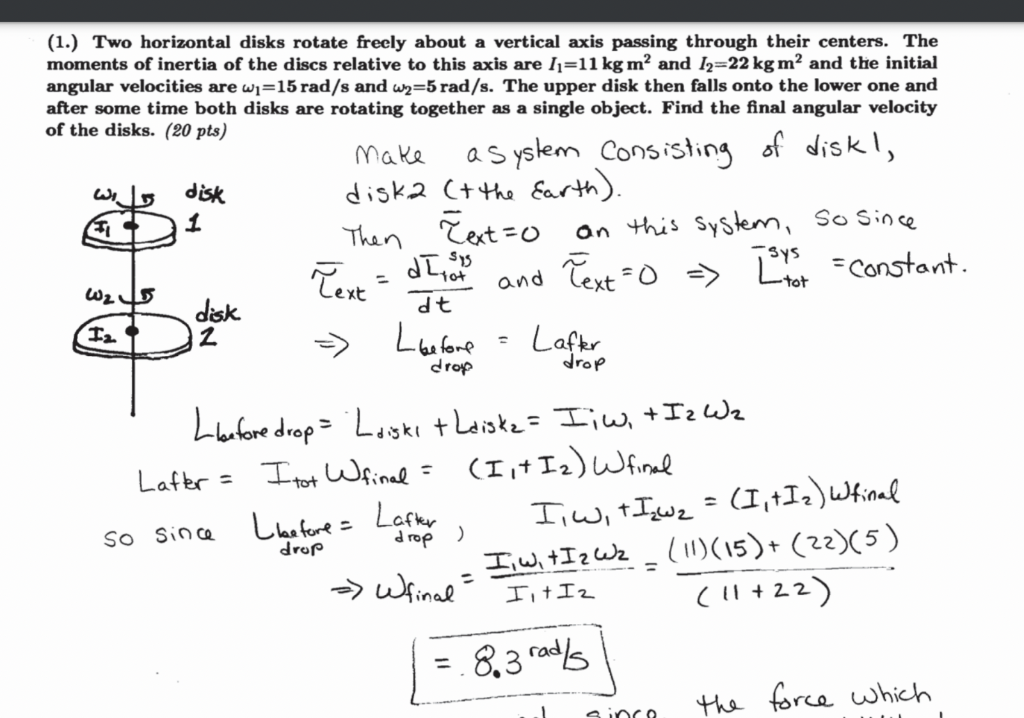 (1.) Two horizontal disks rotate freely about a vertical axis passing through their centers. The
moments of inertia of the discs relative to this axis are I₁=11 kg m² and I₂=22 kg m² and the initial
angular velocities are ω₁=15 rad/s and ω₂=5 rad/s. The upper disk then falls onto the lower one and
after some time both disks are rotating together as a single object. Find the final angular velocity
of the disks. (20 pts)
Make a system consisting of disk 1,
disk 2 (+ the Earth).
Then τ̄ext = 0 on this system, so since
τ̄ext = dL̄tot^sys/dt and τ̄ext = 0 ⇒ L̄tot^sys = constant.
⇒ Lbefore drop = Lafter drop
ω₁ disk 1
I₁
ω₂ disk 2
I₂
Lbefore drop = Ldisk1 + Ldisk2 = I₁ω₁ + I₂ω₂
Lafter = Itot ωfinal = (I₁+I₂)ωfinal
so since Lbefore drop = Lafter drop, I₁ω₁ + I₂ω₂ = (I₁+I₂)ωfinal
⇒ ωfinal = (I₁ω₁+I₂ω₂)/(I₁+I₂) = ((11)(15)+(22)(5))/(11+22)
= 8.3 rad/s
since the force which